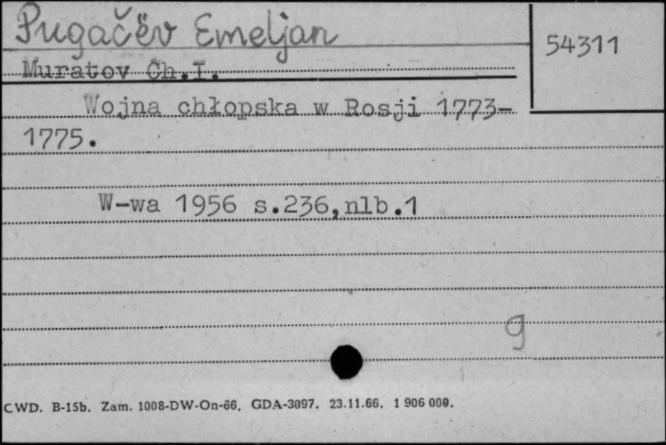 Pugačëv Emeljan
54311
Muratov Ch.I.
Wojna chłopska w Rosji 1773-
1775.
W-wa 1956 s.236,nlb.1
g
CWD. B-15b. Zam. 1008-DW-On-66. GDA-3097. 23.11.66. 1 906 000.